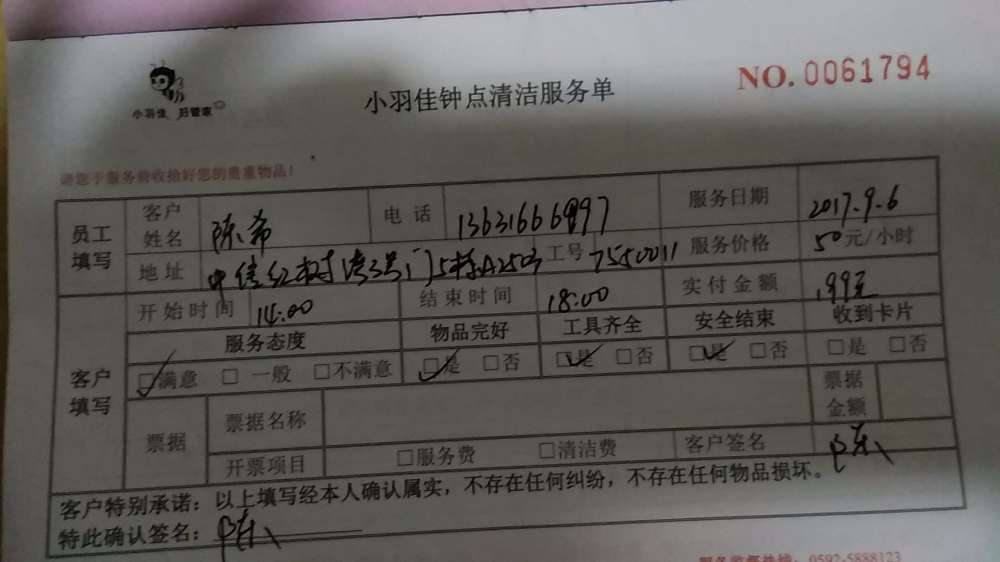 小羽佳 好管家
小羽佳钟点清洁服务单
NO. 0061794
请您于服务前收拾好您的贵重物品！
员工填写 客户姓名 陈希 电话 13631666997 服务日期 2017.9.6
地址 中信红树湾3号门5栋A2503 工号 7550011 服务价格 50元/小时
客户填写 开始时间 14:00 结束时间 18:00 实付金额 199元
服务态度 物品完好 工具齐全 安全结束 收到卡片
☑满意 □一般 □不满意 ☑是 □否 ☑是 □否 ☑是 □否 □是 □否
票据 票据名称 票据金额
开票项目 □服务费 □清洁费 客户签名 陈
客户特别承诺：以上填写经本人确认属实，不存在任何纠纷，不存在任何物品损坏。
特此确认签名：陈
服务监督热线：0592-5888123